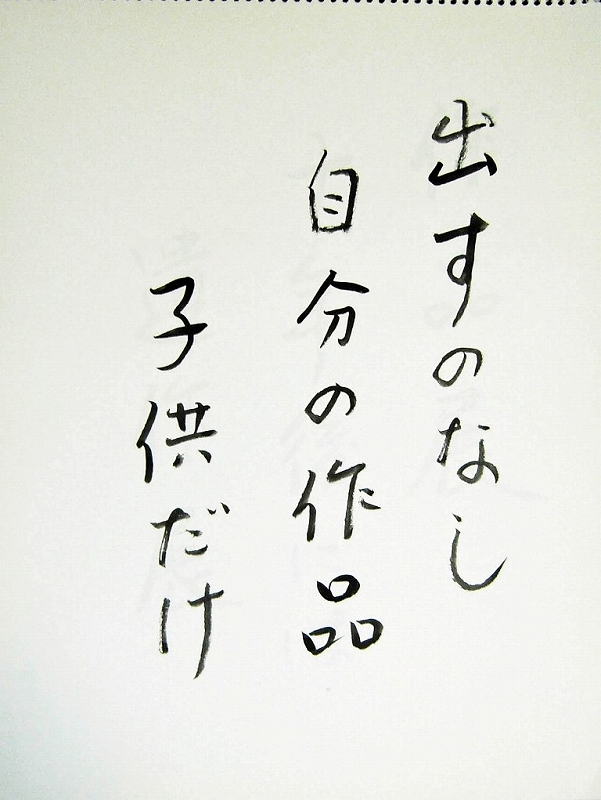 出すのなし
自分の作品
子供だけ